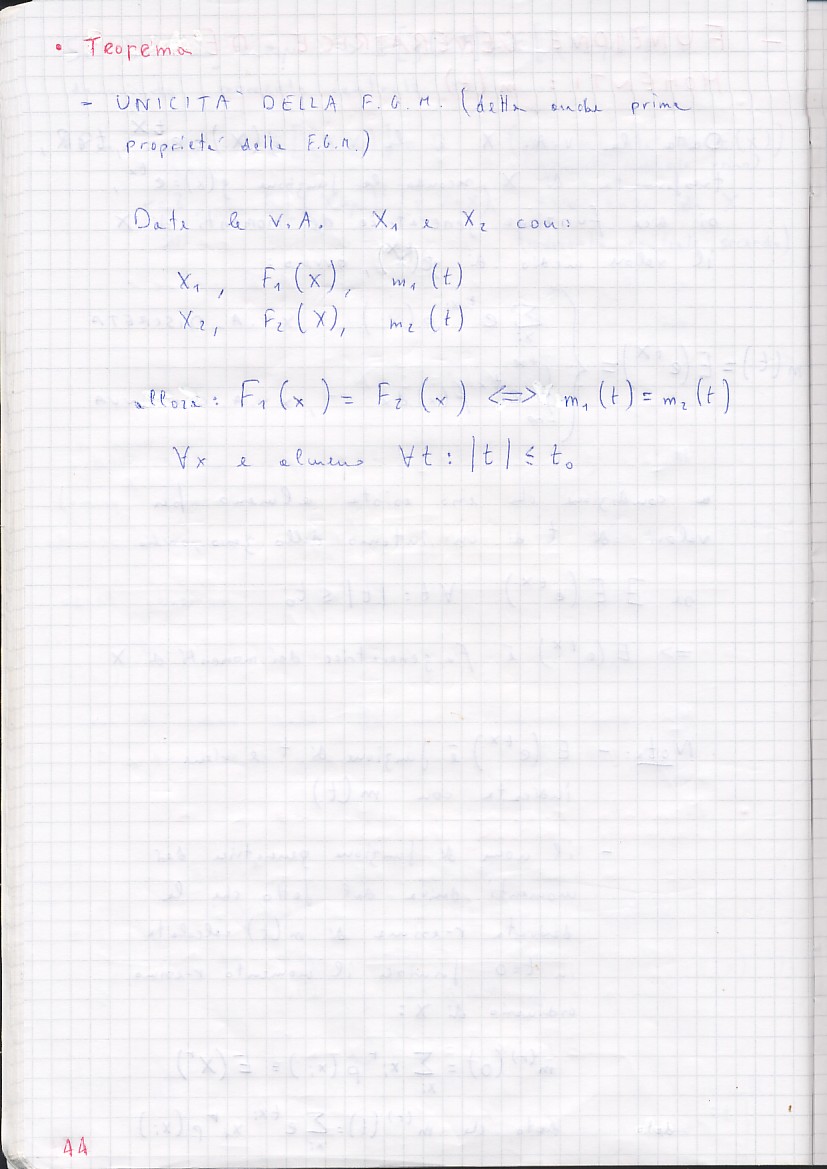 • Teorema
- UNICITA' DELLA F.G.M. (detta anche prima
proprietà della F.G.M.)
Date le V.A. X₁ e X₂ con:
X₁, F₁(x), m₁(t)
X₂, F₂(x), m₂(t)
allora: F₁(x) = F₂(x) <=> m₁(t) = m₂(t)
∀x e almeno ∀t: |t| ≤ t₀
44